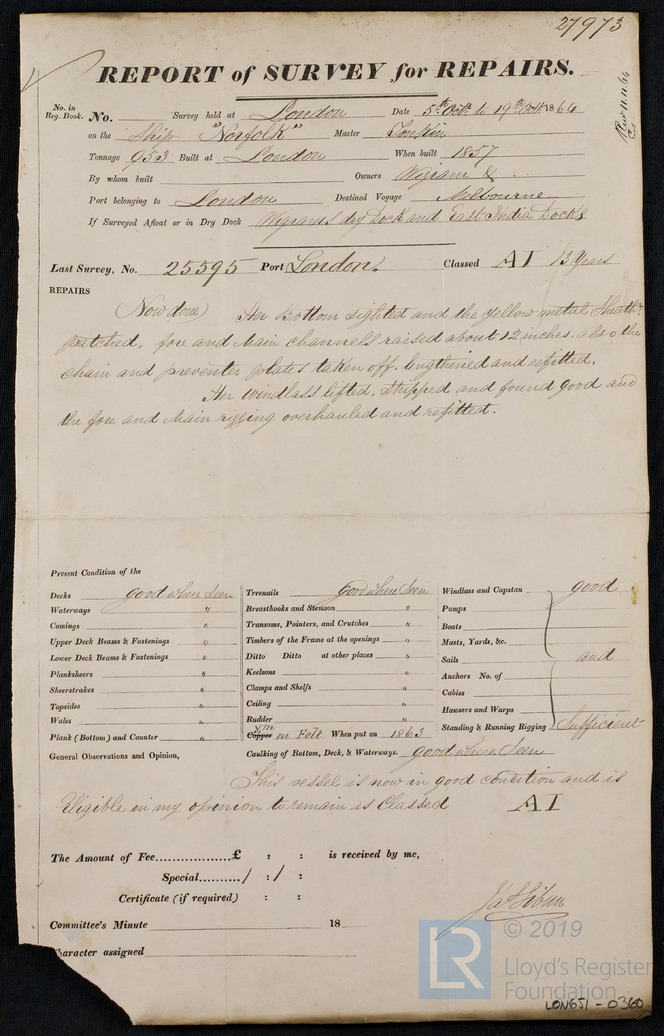 27973
REPORT of SURVEY for REPAIRS.
No. in Reg. Book. No. Survey held at London Date 5th Oct. to 19th Oct. 1864
on the Ship "Norfolk" Master Tonkin
Tonnage 953 Built at London When built 1857
By whom built Owners Wigram &
Port belonging to London Destined Voyage Melbourne
If Surveyed Afloat or in Dry Dock Wigrams dry Dock and East India Docks
Last Survey, No. 25595 Port London. Classed A1 13 Years
REPAIRS
(Now done) Her Bottom sighted and the yellow metal Sheathg
patched, fore and Main channels raised about 12 inches, also the
chain and preventer plates taken off, lengthened and refitted.
Her Windlass lifted, stripped and found good and
the fore and Main rigging overhauled and refitted.
Present Condition of the
Decks good where Seen
Waterways "
Comings "
Upper Deck Beams & Fastenings "
Lower Deck Beams & Fastenings "
Planksheers "
Sheerstrakes "
Topsides "
Wales "
Plank (Bottom) and Counter "
Treenails good where Seen
Breasthooks and Stemson "
Transoms, Pointers, and Crutches "
Timbers of the Frame at the openings "
Ditto Ditto at other places "
Keelsons "
Clamps and Shelfs "
Ceiling "
Rudder "
Copper YM on Felt When put on 1863
Caulking of Bottom, Deck, & Waterways. good where Seen
Windlass and Capstan good
Pumps
Boats
Masts, Yards, &c.
Sails and
Anchors No. of
Cables
Hawsers and Warps
Standing & Running Rigging Sufficient
General Observations and Opinion,
This vessel is now in good condition and is
Eligible in my opinion to remain as Classed A1
The Amount of Fee..................£ : : is received by me,
Special........../ : / :
Certificate (if required) : :
Committee's Minute 18
Character assigned
© 2019
LR Lloyd's Register
Foundation
LON651-0360